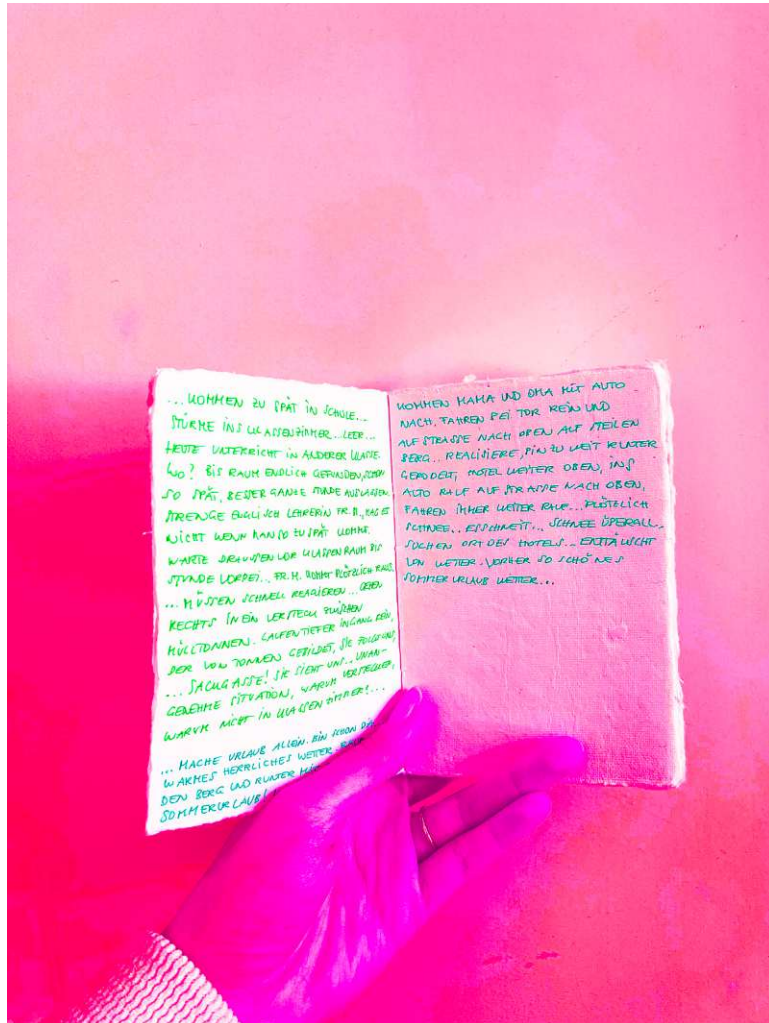 ... KOMMEN ZU SPÄT IN SCHULE...
STÜRME INS KLASSENZIMMER...LEER...
HEUTE UNTERRICHT IN ANDERER KLASSE.
WO? BIS RAUM ENDLICH GEFUNDEN, SCHON
SO SPÄT, BESSER GANZE STUNDE AUSLASSEN.
STRENGE ENGLISCH LEHRERIN FR. M., MAG ES
NICHT WENN MAN SO ZU SPÄT KOMMT.
WARTE DRAUSSEN VOR KLASSENRAUM BIS
STUNDE VORBEI... FR. M. KOMMT PLÖTZLICH RAUS.
... MÜSSEN SCHNELL REAGIEREN... GEHEN
RECHTS IN EIN VERSTECK ZWISCHEN
MÜLLTONNEN. LAUFEN TIEFER IN GANG REIN,
DER VON TONNEN GEBILDET, SIE FOLGT UNS,
... SACKGASSE! SIE SIEHT UNS... UNAN-
GENEHME SITUATION, WARUM VERSTECKEN,
WARUM NICHT IN KLASSENZIMMER!...
... MACHE URLAUB ALLEIN. BIN SCHON
WARMES HERRLICHES WETTER.
DEN BERG UND RUNTER
SOMMERURLAUB!
KOMMEN MAMA UND OMA MIT AUTO
NACH, FAHREN BEI TOR REIN UND
AUF STRASSE NACH OBEN AUF STEILEN
BERG... REALISIERE, BIN ZU WEIT RUNTER
GERODELT, HOTEL WEITER OBEN, INS
AUTO RAUF AUF STRASSE NACH OBEN,
FAHREN IMMER WEITER RAUF... PLÖTZLICH
SCHNEE... ES SCHNEIT... SCHNEE ÜBERALL,
SUCHEN ORT DES HOTELS... ENTTÄUSCHT
VON WETTER. VORHER SO SCHÖNES
SOMMERURLAUB WETTER...